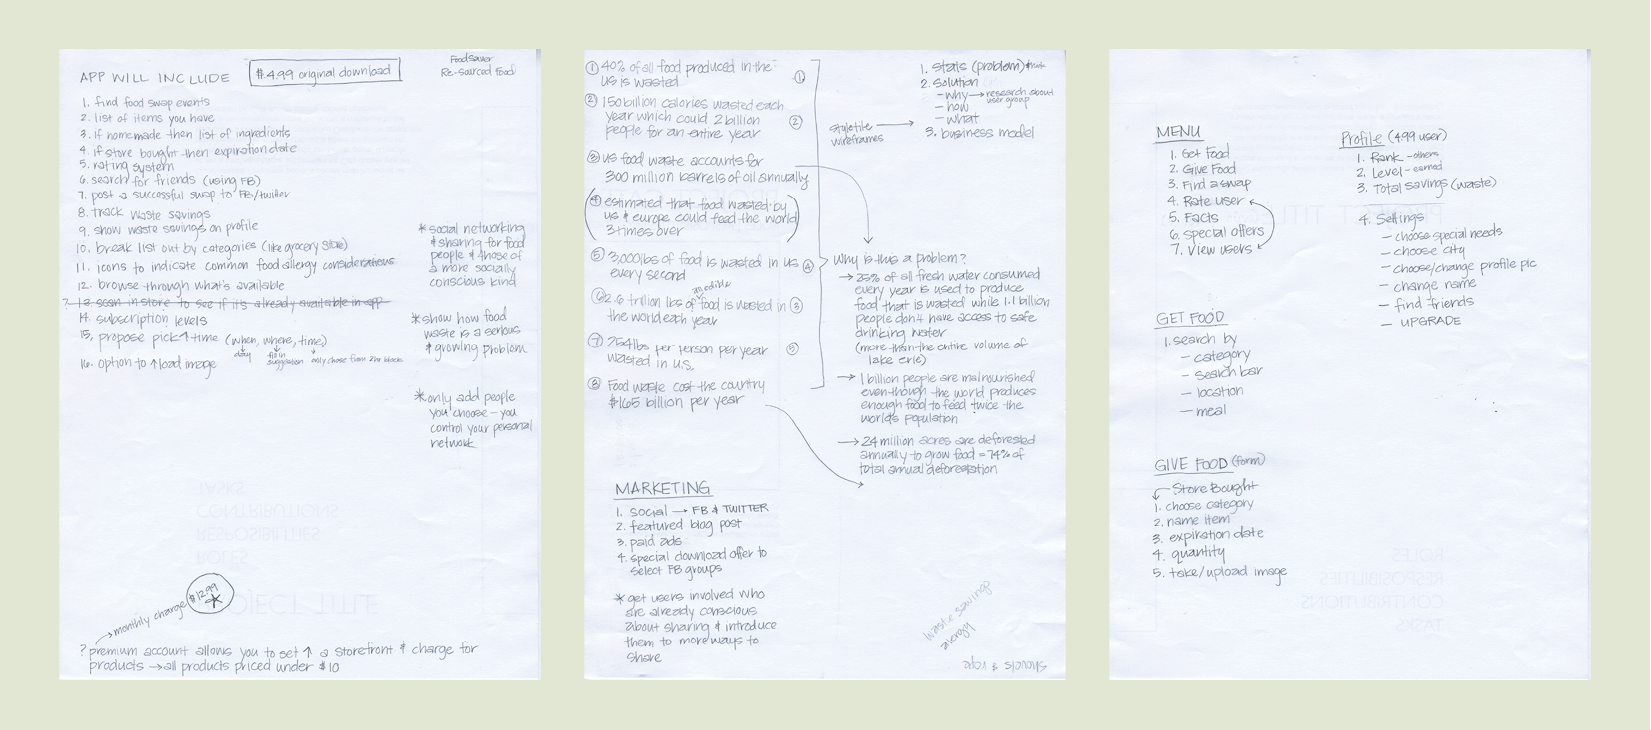 APP WILL INCLUDE
$4.99 original download
FoodSaver
Re-Sourced Food
1. find food swap events
2. list of items you have
3. if homemade then list of ingredients
4. if store bought then expiration date
5. rating system
6. search for friends (using FB)
7. post a successful swap to FB/twitter
8. track waste savings
9. show waste savings on profile
10. break list out by categories (like grocery store)
11. icons to indicate common food allergy considerations
12. browse through what's available
? 13 scan in store to see if it's already available in app
14. subscription levels
15. propose pick↑ time (when, where, time)
day
fill in
suggestion
only chose from 2hr blocks
16. option to ↑load image
*social networking
& sharing for food
people & those of
a more socially
conscious kind
*show how food
waste is a serious
& growing problem
*only add people
you choose - you
control your personal
network
TASKS
CONTRIBUTIONS
RESPOSIBILITIES
ROLES
PROJECT TITLE
monthly charge $12.99
*
? premium account allows you to set ↑ a storefront & charge for
products → all products priced under $10
① 40% of all food produced in the
US is wasted
①
② 150 billion calories wasted each
year which could 2 billion
people for an entire year
②
③ US food waste accounts for
300 million barrels of oil annually
④ estimated that food wasted by
US & europe could feed the world
3 times over
⑤ 3,000 lbs of food is wasted in US
every second
④
⑥ 2.6 trillion lbs of edible food is wasted in
the world each year
③
⑦ 254 lbs per person per year
wasted in U.S.
⑤
⑧ Food waste cost the country
$165 billion per year
1. stats (problem)
2. solution
- why → research about
user group
- how
- what
3. business model
styletile
wireframes
Why is this a problem?
→ 25% of all fresh water consumed
every year is used to produce
food that is wasted while 1.1 billion
people don't have access to safe
drinking water
(more than the entire volume of
lake erie)
→ 1 billion people are malnourished
even though the world produces
enough food to feed twice the
world's population
→ 24 million acres are deforested
annually to grow food = 74% of
total annual deforestation
MARKETING
1. social → FB & TWITTER
2. featured blog post
3. paid ads
4. special download offer to
select FB groups
* get users involved who
are already conscious
about sharing & introduce
them to more ways to
share
waste savings
energy
MENU
1. Get Food
2. Give Food
3. Find a swap
4. Rate user
5. Facts
6. Special offers
7. View users
Profile (4.99 user)
1. Rank - others
2. Level - earned
3. Total savings (waste)
4. Settings
- choose special needs
- choose city
- choose/change profile pic
- change name
- find friends
- UPGRADE
GET FOOD
1. search by
- category
- search bar
- location
- meal
GIVE FOOD (form)
Store Bought
1. choose category
2. name item
3. expiration date
4. quantity
5. take/upload image
ROLES
RESPOSIBILITIES
CONTRIBUTIONS
TASKS